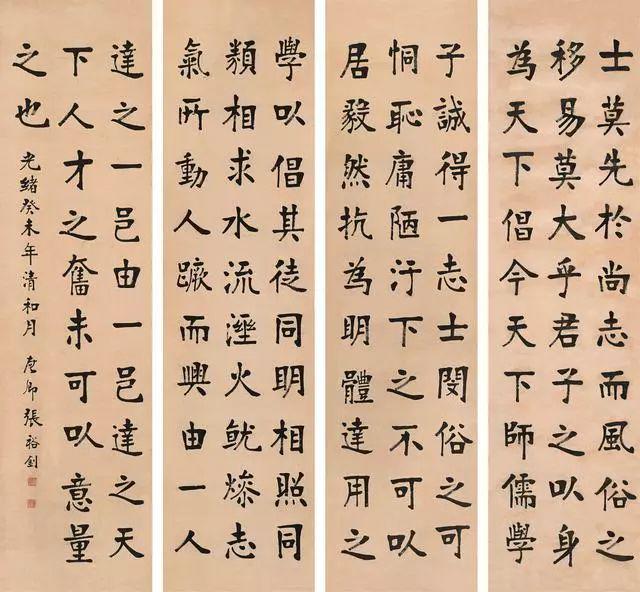 士莫先於尚志而風俗之
移易莫大乎君子之以身
為天下倡今天下師儒學
子誠得一志士閔俗之可
恫恥庸陋汙下之不可以
居毅然抗為明體達用之
學以倡其徒同明相照同
類相求水流溼火就燥志
氣所動人蹶而興由一人
達之一邑由一邑達之天
下人才之奮未可以意量
之也 光緒癸未年清和月 廉卿張裕釗